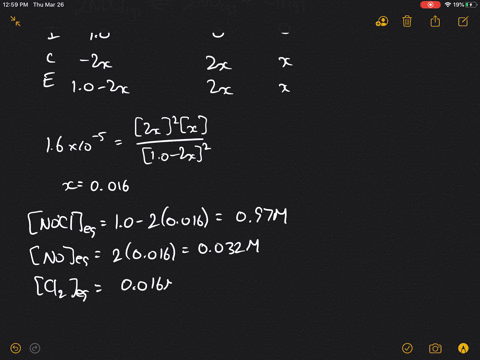 12:59 PM Thu Mar 26
19%
I 1.0 0
C -2x 2x x
E 1.0-2x 2x x
1.6×10⁻⁵ = [2x]²[x] / [1.0-2x]²
x=0.016
[NOCl]eq = 1.0-2(0.016) = 0.97M
[NO]eq = 2(0.016) = 0.032M
[Cl₂]eq = 0.016